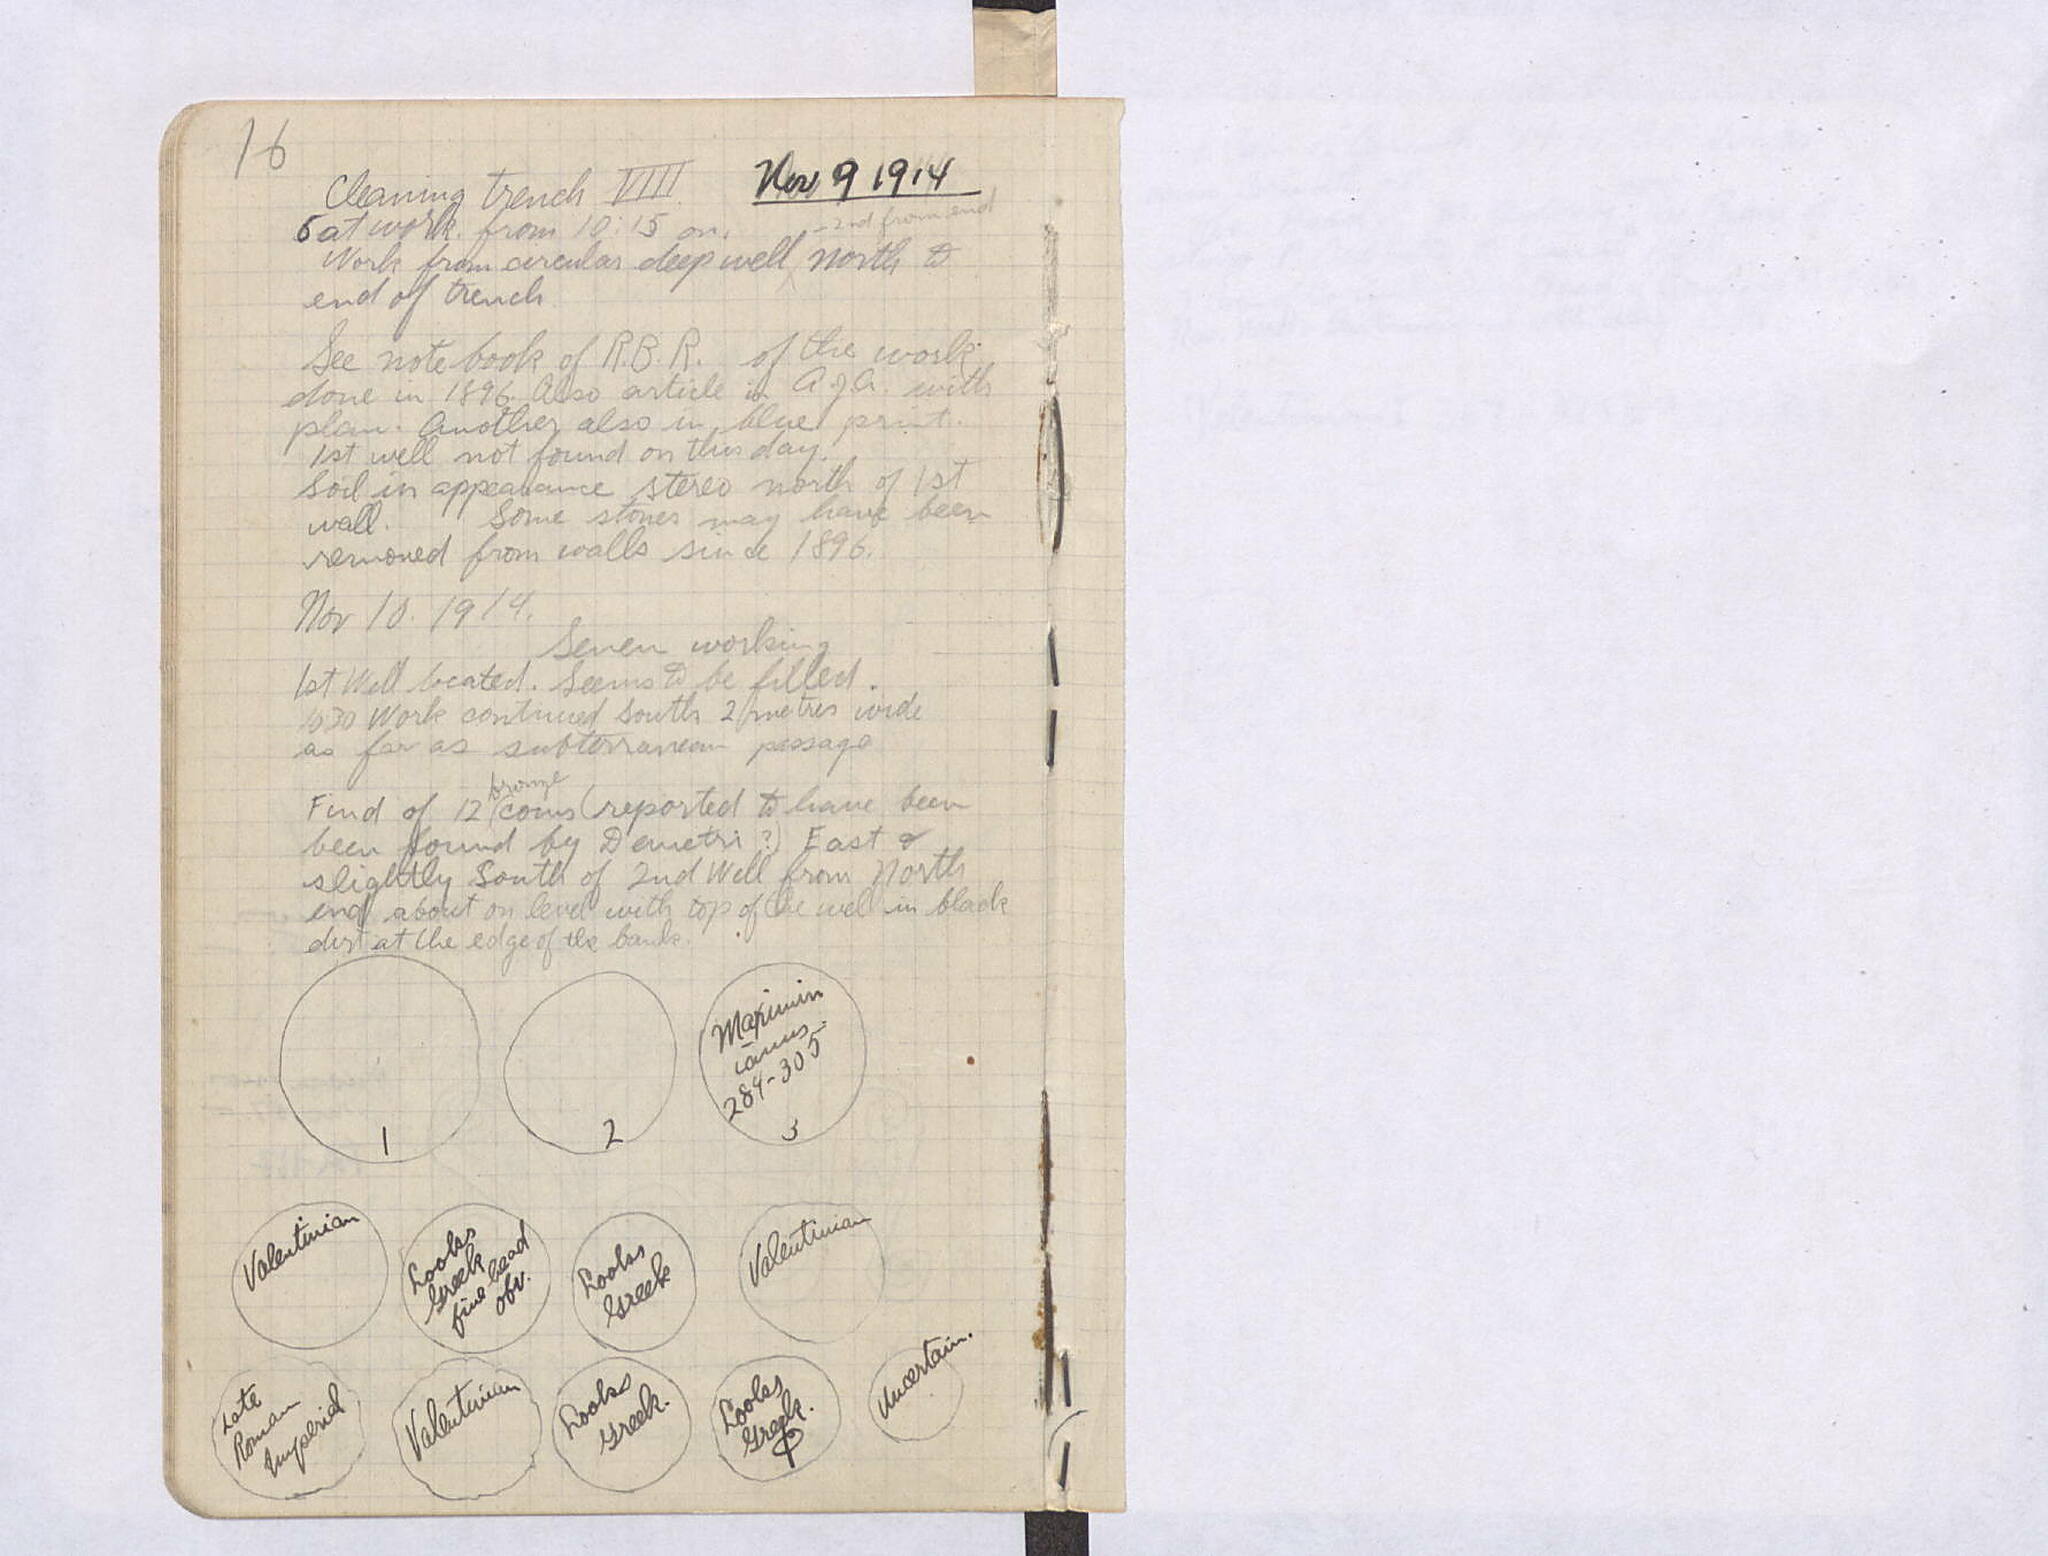 16
Cleaning trench VIII. Nov 9 1914
6 at work from 10:15 on. - 2nd from end
Work from circular deep well north to
end of trench
See note book of R.B.R. of the work
done in 1896. Also article in A.J.A. with
plan. Another also in blue print.
1st well not found on this day.
Soil in appearance stereo north of 1st
wall. Some stones may have been
removed from walls since 1896.
Nov 10. 1914.
Seven working
1st Well located. Seems to be filled.
10:30 Work continued South 2 metres wide
as far as subterranean passage
bronze
Find of 12 coins (reported to have been
been found by Demetri?) East &
slightly South of 2nd Well from North
end about on level with top of the well in black
dirt at the edge of the bank.
Maximin
ianus
284-305
1 2 3
Valentinian
Looks
Greek
fine head
obv.
Looks
Greek
Valentinian
Late
Roman
Imperial
Valentinian
Looks
Greek.
Looks
Greek.
Uncertain.